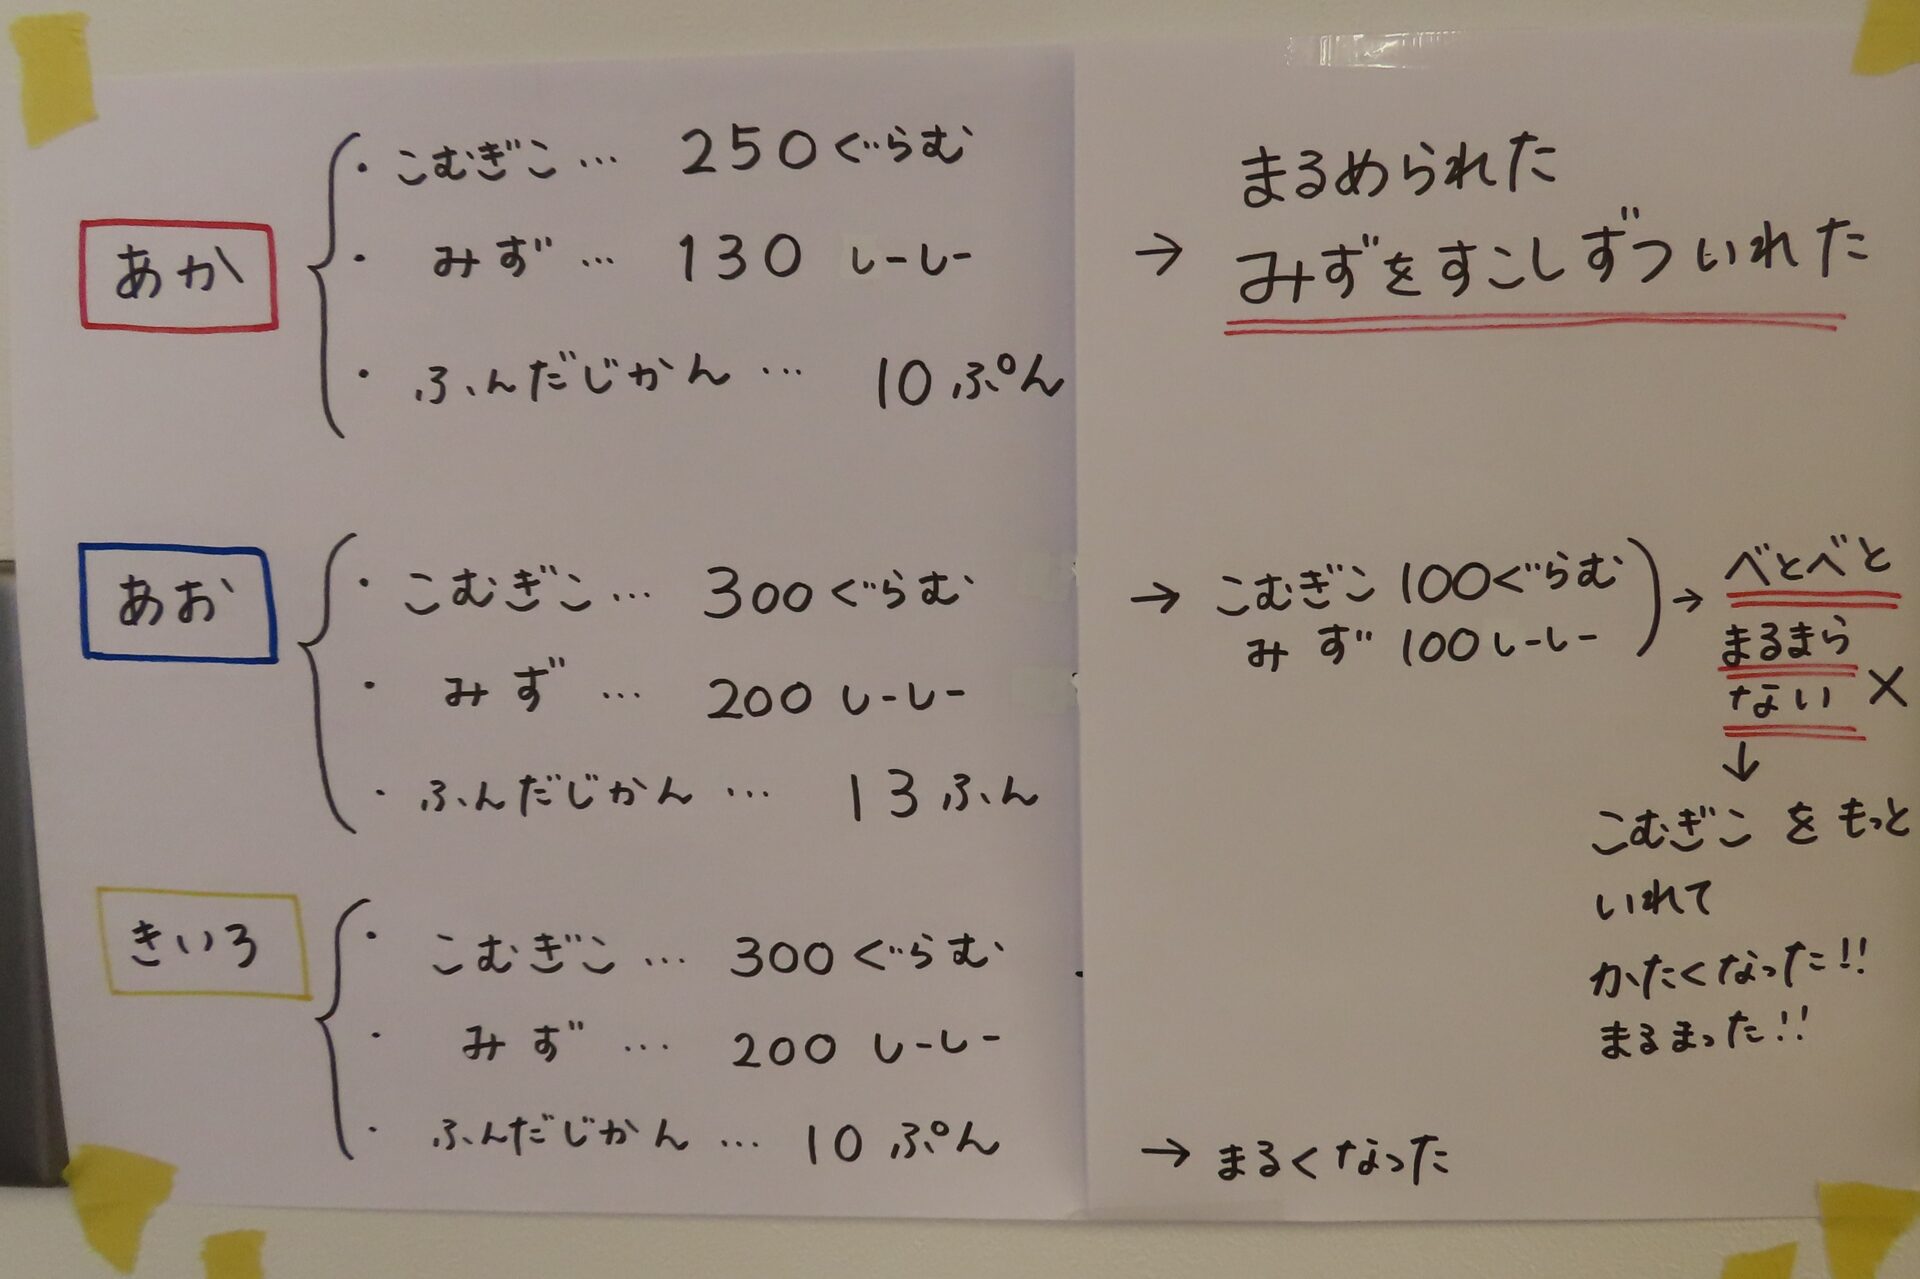 あか
・こむぎこ… 250ぐらむ
・みず… 130 しーしー
・ふんだじかん… 10ぷん
→ まるめられた
みずをすこしずついれた
あお
・こむぎこ… 300ぐらむ
・みず… 200しーしー
・ふんだじかん… 13ふん
→ こむぎこ 100ぐらむ
みず 100しーしー
→ べとべと
まるまら
ない ×
↓
こむぎこをもっと
いれて
かたくなった!!
まるまった!!
きいろ
・こむぎこ… 300ぐらむ
・みず… 200しーしー
・ふんだじかん… 10ぷん
→ まるくなった